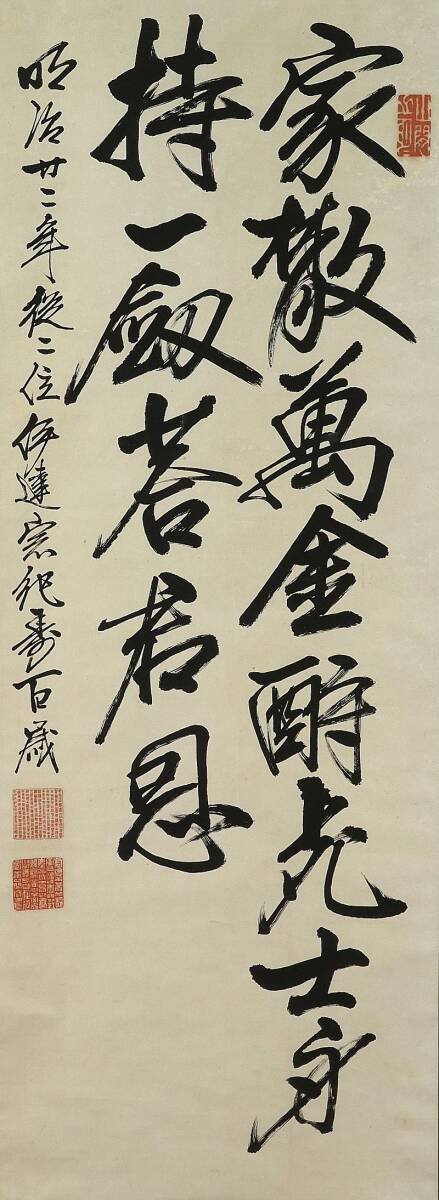 家散萬金酬死士身
持一劔荅君恩
明治廿二年從二位伊達宗紀壽百歲